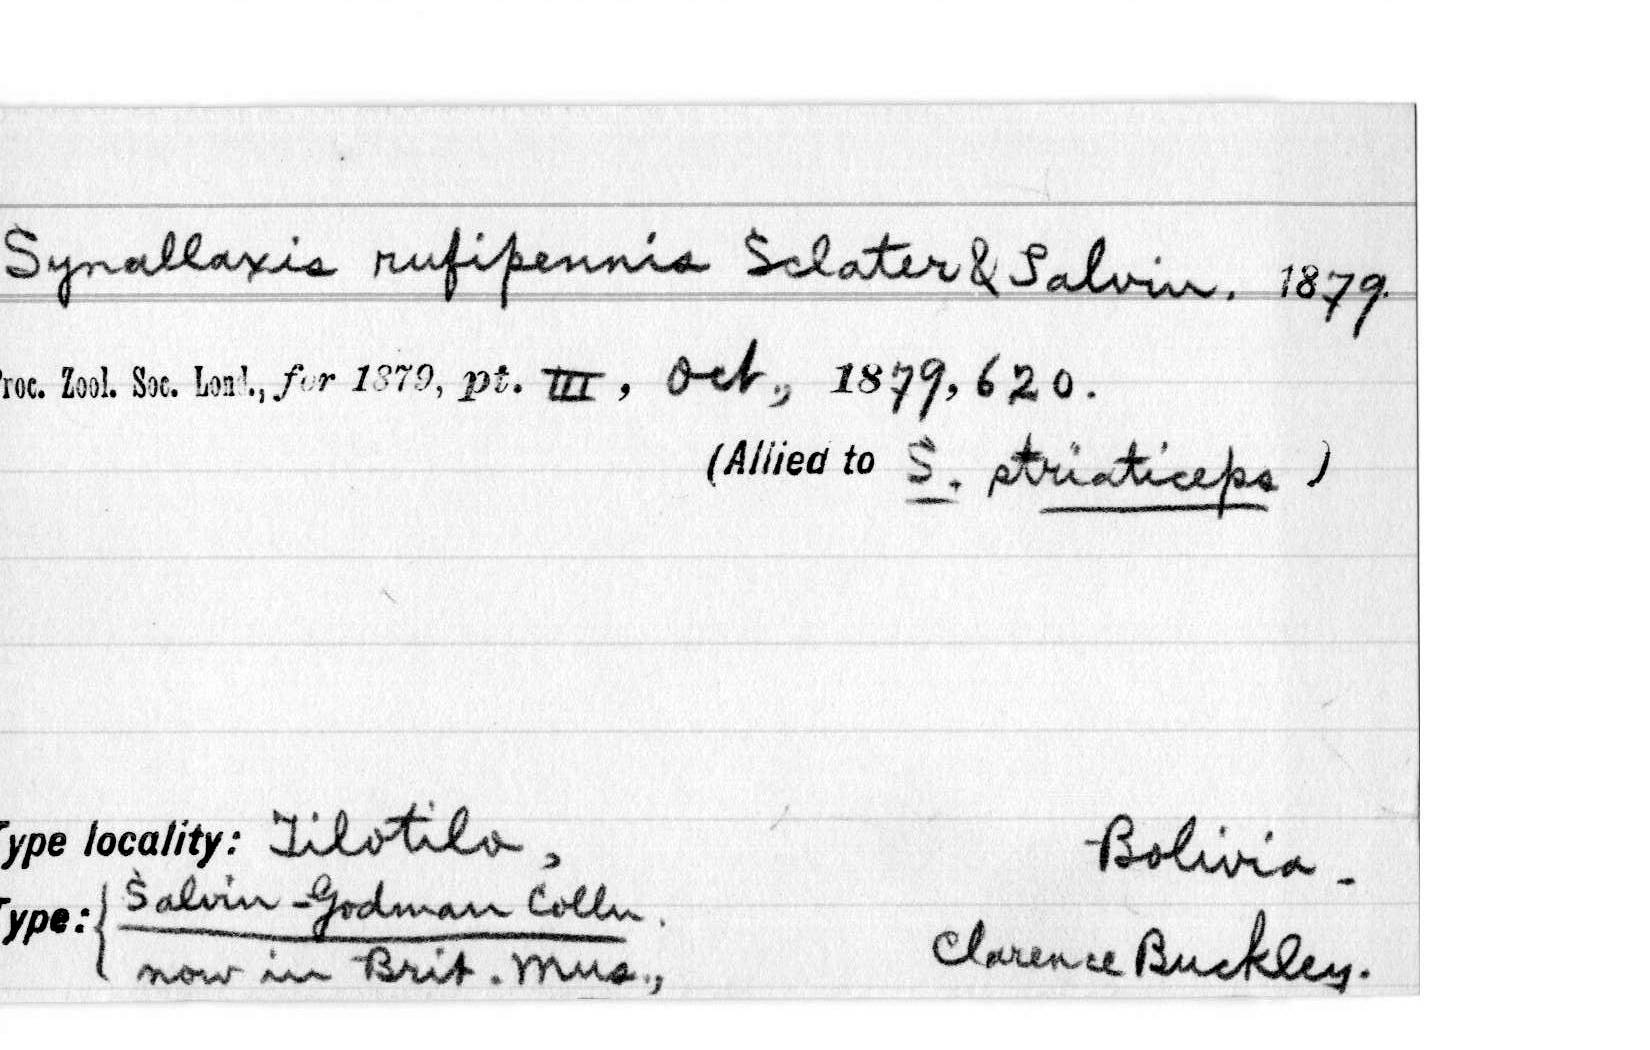 Synallaxis rufipennis Sclater & Salvin. 1879.
Proc. Zool. Soc. Lond., for 1879, pt. III, Oct., 1879, 620.
(Allied to S. striaticeps)
Type locality: Tilotilo, Bolivia -
Type: { Salvin-Godman Colln.
now in Brit. Mus., Clarence Buckley.